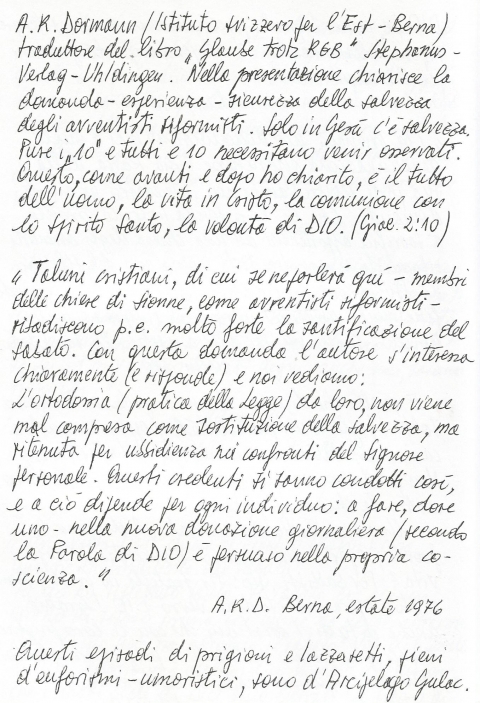 A.R. Dormann (Istituto svizzero per l'Est - Berna)
traduttore del libro „Glaube trotz KGB“ Stephanus-
Verlag-Uhldingen. Nella presentazione chiarisce la
domanda - esperienza - sicurezza della salvezza
degli avventisti riformisti. Solo in Gesù c'è salvezza.
Pure i „10“ e tutti e 10 necessitano venir osservati.
Questo, come avanti e dopo ho chiarito, è il tutto
dell'uomo, la vita in Cristo, la comunione con
lo Spirito Santo, la volontà di DIO. (Giac. 2:10)
„Taluni cristiani, di cui se ne parlerà quì - membri
delle chiese di sionne, come avventisti riformisti -
ribadiscono p.e. molto forte la santificazione del
sabato. Con questa domanda l'autore s'interessa
chiaramente (e risponde) e noi vediamo:
L'ortodossia (pratica della Legge) da loro, non viene
mal compresa come sostituzione della salvezza, ma
ritenuta per ubbidienza nei confronti del signore
personale. Questi credenti si sanno condotti così,
e a ciò dipende per ogni individuo: a fare, dove
uno - nella nuova donazione giornaliera (secondo
la Parola di DIO) è persuaso nella propria co-
scienza.“
A.R.D. Berna, estate 1976
Questi episodi di prigioni e lazzaretti, pieni
d'euforismi - umoristici, sono d'Arcipelago Gulac.